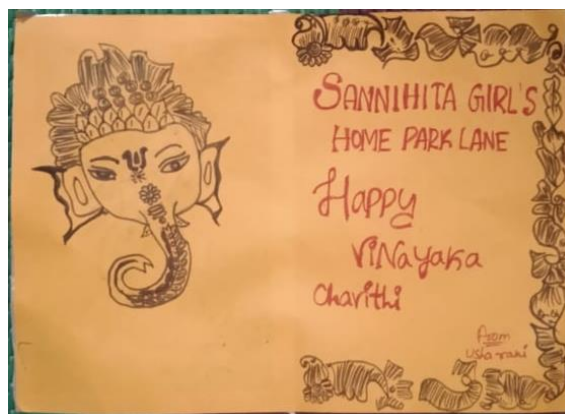 SANNIHITA GIRL'S
HOME PARK LANE
Happy
ViNayaka
Chavithi
From
Usharani